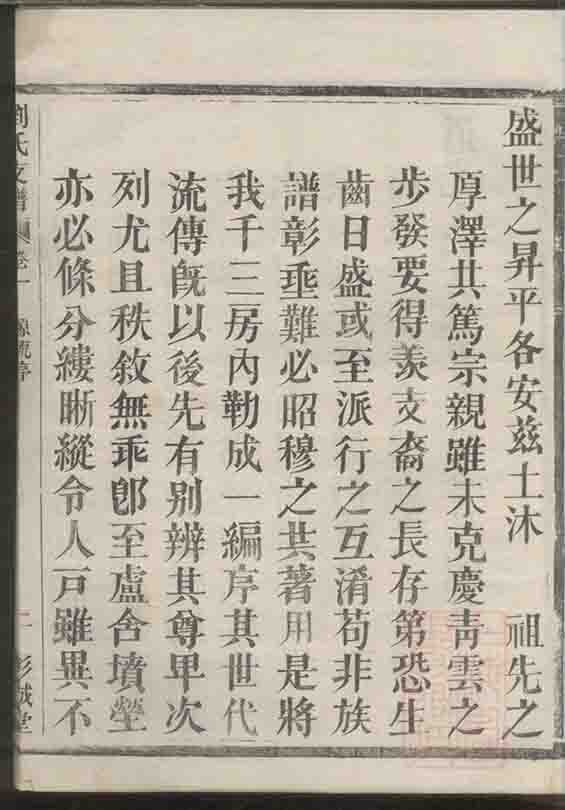 盛世之昇平各安茲土沐　祖先之
厚澤共篤宗親雖未克慶靑雲之
步發要得羨支裔之長存第恐生
齒日盛或至派行之互淆苟非族
譜彰埀難必昭穆之共著用是將
我千三房內勒成一編序其世代
流傳旣以後先有别辨其尊卑次
列尤且秩敘無乖卽至廬舍墳塋
亦必條分縷晣縱令人戸雖異不
劉氏支譜 卷一 源流序 二 彭城堂